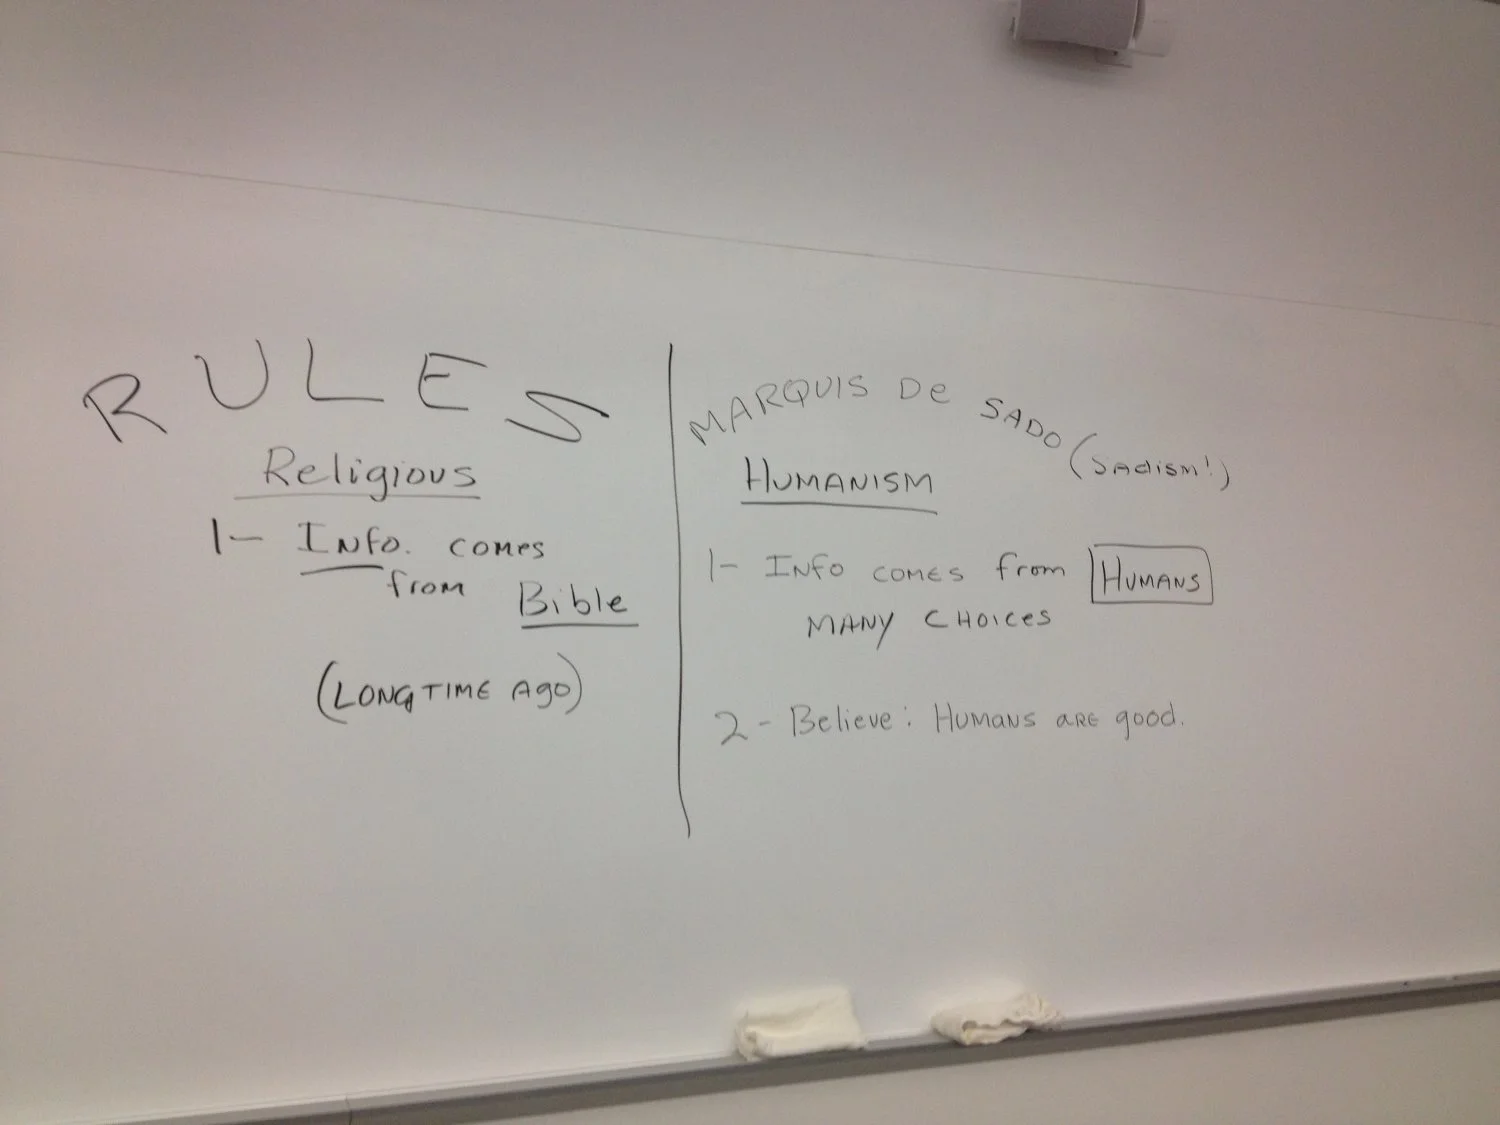 RULES
Religious
1- Info. comes
from Bible
(LONG TIME Ago)
MARQUIS De SADO (SAdism!)
HUMANISM
1- INfo comes from HUMANS
MANY CHOICes
2- Believe: HUMANS ARE good.